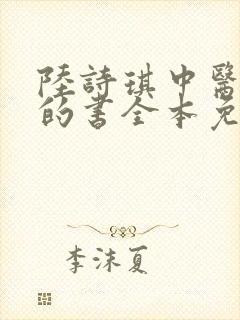 陸詩琪中醫
的書全本免
李沫夏